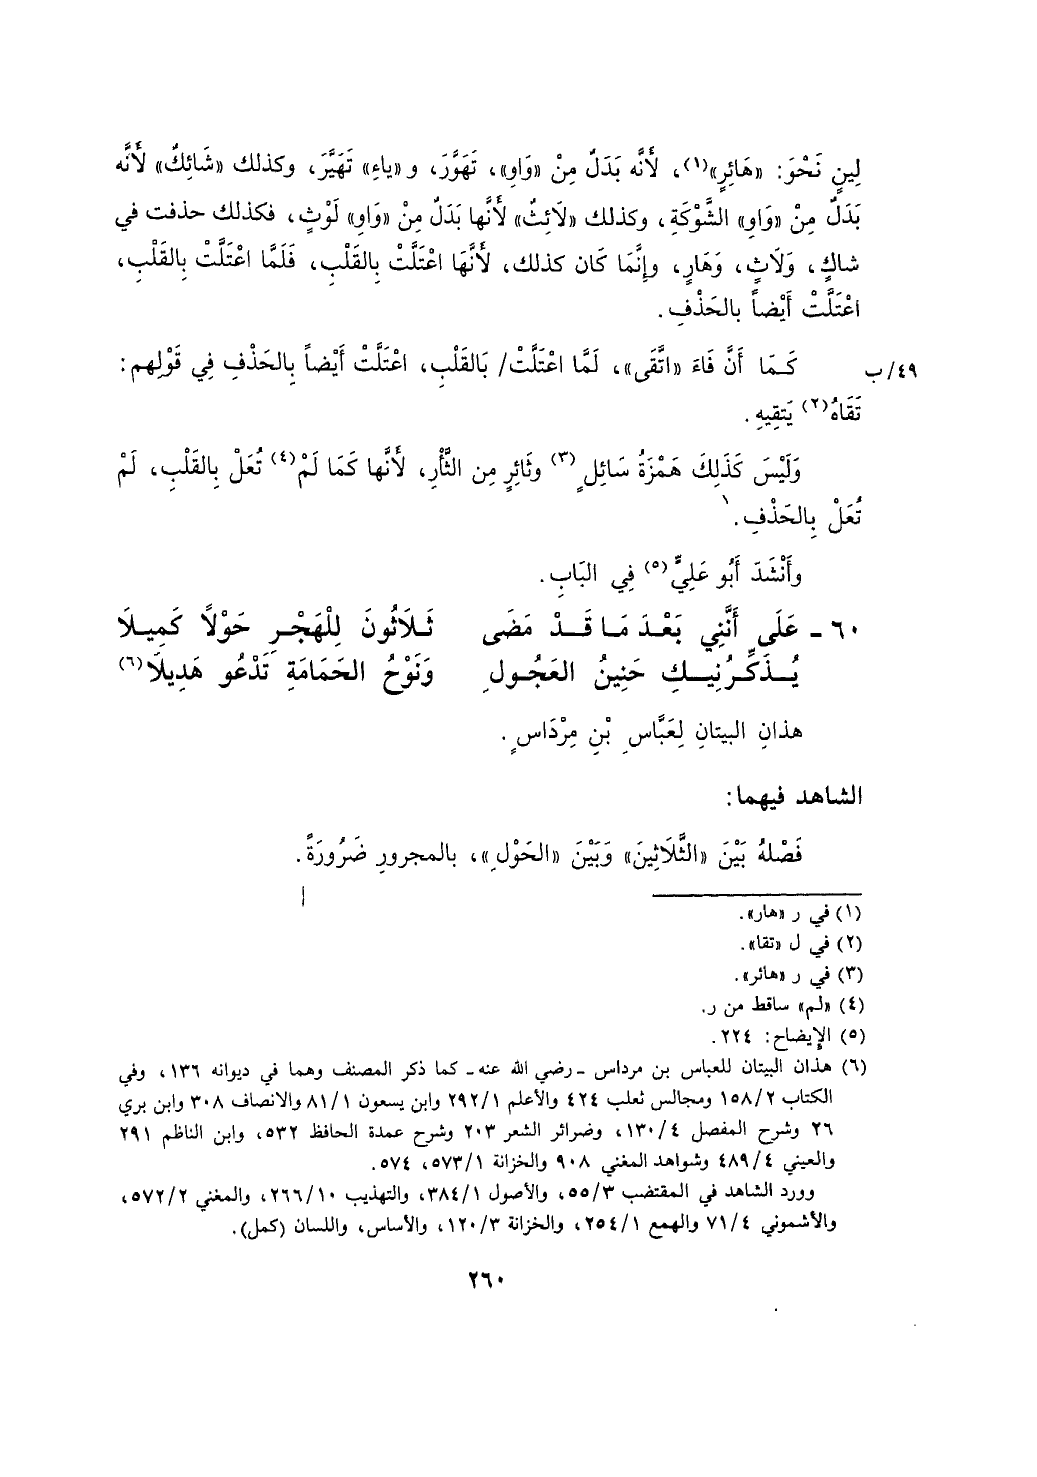 لِينٍ نَحْوَ: «هَائِرٍ»(١)، لأَنَّه بَدَلٌ مِنْ «وَاوِ»، تَهَوَّرَ، و «ياءِ» تَهَيَّرَ، وكذلك «شَائِكٌ» لأَنَّه
بَدَلٌ مِنْ «وَاوِ» الشَّوْكَةِ، وكذلك «لَائِثٌ» لأَنَّها بَدَلٌ مِنْ «وَاوِ» لَوْثٍ، فكذلك حذفت في
شاكٍ، وَلَاثٍ، وَهَارٍ، وإِنَّمَا كَان كذلك، لأَنَّهَا اعْتَلَّتْ بِالقَلْبِ، فَلَمَّا اعْتَلَّتْ بِالقَلْبِ،
اعْتَلَّتْ أَيْضاً بالحَذْفِ.
٤٩/ب كَمَا أَنَّ فَاءَ «اتَّقَى»، لَمَّا اعْتَلَّتْ/ بَالقَلْبِ، اعْتَلَّتْ أَيْضاً بِالحَذْفِ فِي قَوْلِهم:
تَقَاهُ(٢) يَتَقِيهِ.
وَلَيْسَ كَذَلِكَ هَمْزَةُ سَائِلٍ(٣) وثَائِرٍ مِن الثَّأْرِ، لأَنَّها كَمَا لَمْ(٤) تُعَلْ بِالقَلْبِ، لَمْ
تُعَلْ بِالحَذْفِ.
وأَنْشَدَ أَبُو عَلِيٍّ(٥) فِي البَابِ.
٦٠ - عَلَى أَنَّنِي بَعْدَ مَا قَدْ مَضَى ثَلاَثُونَ لِلْهَجْرِ حَوْلاً كَمِيلاَ
يُذَكِّرُنِيكِ حَنِينُ العَجُولِ وَنَوْحُ الحَمَامَةِ تَدْعُو هَدِيلاَ(٦)
هذانِ البيتانِ لِعَبَّاسِ بْنِ مِرْدَاسٍ.
الشاهد فيهما:
فَصْلهُ بَيْنَ «الثَّلَاثِينَ» وَبَيْنَ «الحَوْلِ»، بالمجرورِ ضَرُورَةً.
(١) في ر «هار».
(٢) في ل «تقا».
(٣) في ر «هائر».
(٤) «لم» ساقط من ر.
(٥) الإيضاح: ٢٢٤.
(٦) هذان البيتان للعباس بن مرداس -رضي الله عنه- كما ذكر المصنف وهما في ديوانه ١٣٦، وفي
الكتاب ١٥٨/٢ ومجالس ثعلب ٤٢٤ والأعلم ٢٩٢/١ وابن يسعون ٨١/١ والانصاف ٣٠٨ وابن بري
٢٦ وشرح المفصل ١٣٠/٤، وضرائر الشعر ٢٠٣ وشرح عمدة الحافظ ٥٣٢، وابن الناظم ٢٩١
والعيني ٤٨٩/٤ وشواهد المغني ٩٠٨ والخزانة ٥٧٣/١، ٥٧٤.
وورد الشاهد في المقتضب ٥٥/٣، والأصول ٣٨٤/١، والتهذيب ٢٦٦/١٠، والمغني ٥٧٢/٢،
والأشموني ٧١/٤ والهمع ٢٥٤/١، والخزانة ١٢٠/٣، والأساس، واللسان (كمل).
٢٦٠